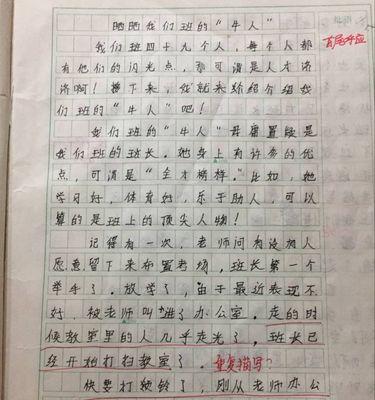 晒晒我们班的“牛人”
我们班四十九个人，每个人都
有他们的闪光点，那可谓是人才济
济啊！接下来，我就来给介绍给我
们班的“牛人”吧！
我们班的“牛人”毋庸置疑是
我们班的班长。她身上有许多的优
点，可谓是“全才榜样。”比如，她
学习好，体育好，乐于助人，可以
算的是班上的顶尖人物！
记得有一次，老师问有没有人
愿意留下来布置考场，班长第一个
举手了。放学了，由于最近表现不
好，被老师叫进了办公室。走的时
候教室里的人几乎走光了，班长已
经开始打扫教室了。重复描写？
快要打预铃了，刚从老师办公
首尾呼应